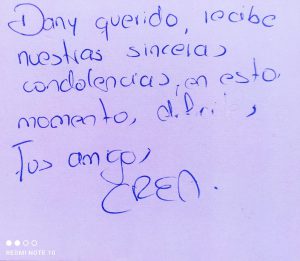 Dany querido, recibe
nuestras sinceras
condolencias, en estos
momentos, difíciles
Tus amigos
CREA.
REDMI NOTE 10